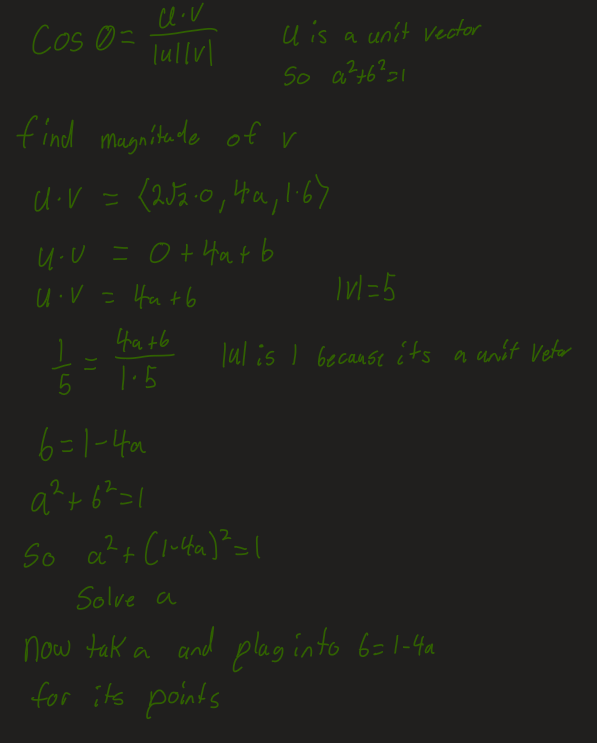 Cos θ = u·v / |u||v|    u is a unit vector
So a²+b²=1
find magnitude of v
u·v = ⟨2√2·0, 4a, 1·b⟩
u·v = 0+4a+b
u·v = 4a+b    |v|=5
1/5 = 4a+b / 1·5    |u| is 1 because its a unit vetor
b=1-4a
a²+b²=1
So a²+(1-4a)²=1
Solve a
now tak a and plug into b=1-4a
for its points